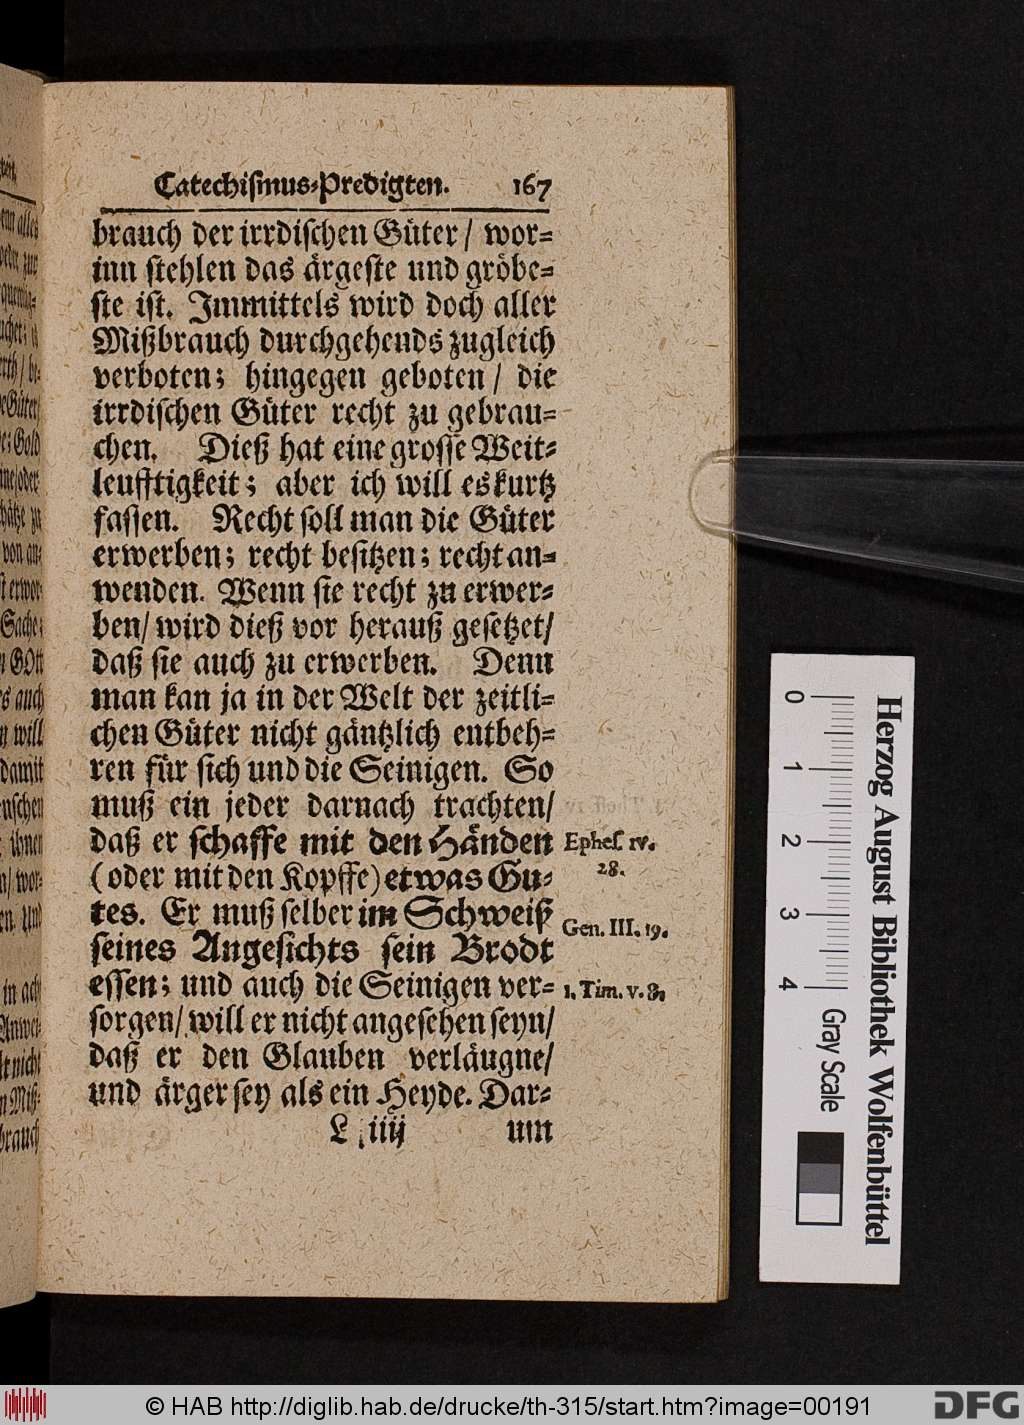 Catechiſmus-Predigten. 167
brauch der irrdiſchen Güter / wor-
inn ſtehlen das ärgeſte und gröbe-
ſte iſt. Immittels wird doch aller
Mißbrauch durchgehends zugleich
verboten; hingegen geboten / die
irrdiſchen Güter recht zu gebrau-
chen. Dieß hat eine groſſe Weit-
leufftigkeit; aber ich will es kurtz
faſſen. Recht ſoll man die Güter
erwerben; recht beſitzen; recht an-
wenden. Wenn ſie recht zu erwer-
ben/ wird dieß vor herauß geſetzet/
daß ſie auch zu erwerben. Denn
man kan ja in der Welt der zeitli-
chen Güter nicht gäntzlich entbeh-
ren für ſich und die Seinigen. So
muß ein jeder darnach trachten/
daß er ſchaffe mit den Händen
(oder mit den Kopffe) etwas Gu-
tes. Er muß ſelber im Schweiß
ſeines Angeſichts ſein Brodt
eſſen; und auch die Seinigen ver-
ſorgen/ will er nicht angeſehen ſeyn/
daß er den Glauben verläugne/
und ärger ſey als ein Heyde. Dar-
L iiij um
Epheſ. IV.
28.
Gen. III. 19.
1. Tim. v. 8.
Herzog August Bibliothek Wolfenbüttel
0 1 2 3 4 Gray Scale
© HAB http://diglib.hab.de/drucke/th-315/start.htm?image=00191
DFG